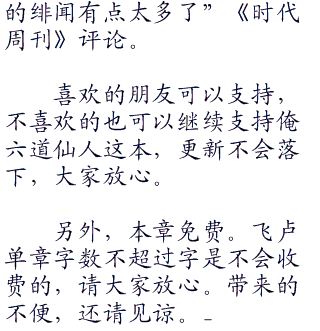 的绯闻有点太多了”《时代
周刊》评论。
喜欢的朋友可以支持，
不喜欢的也可以继续支持俺
六道仙人这本，更新不会落
下，大家放心。
另外，本章免费。飞卢
单章字数不超过字是不会收
费的，请大家放心。带来的
不便，还请见谅。_